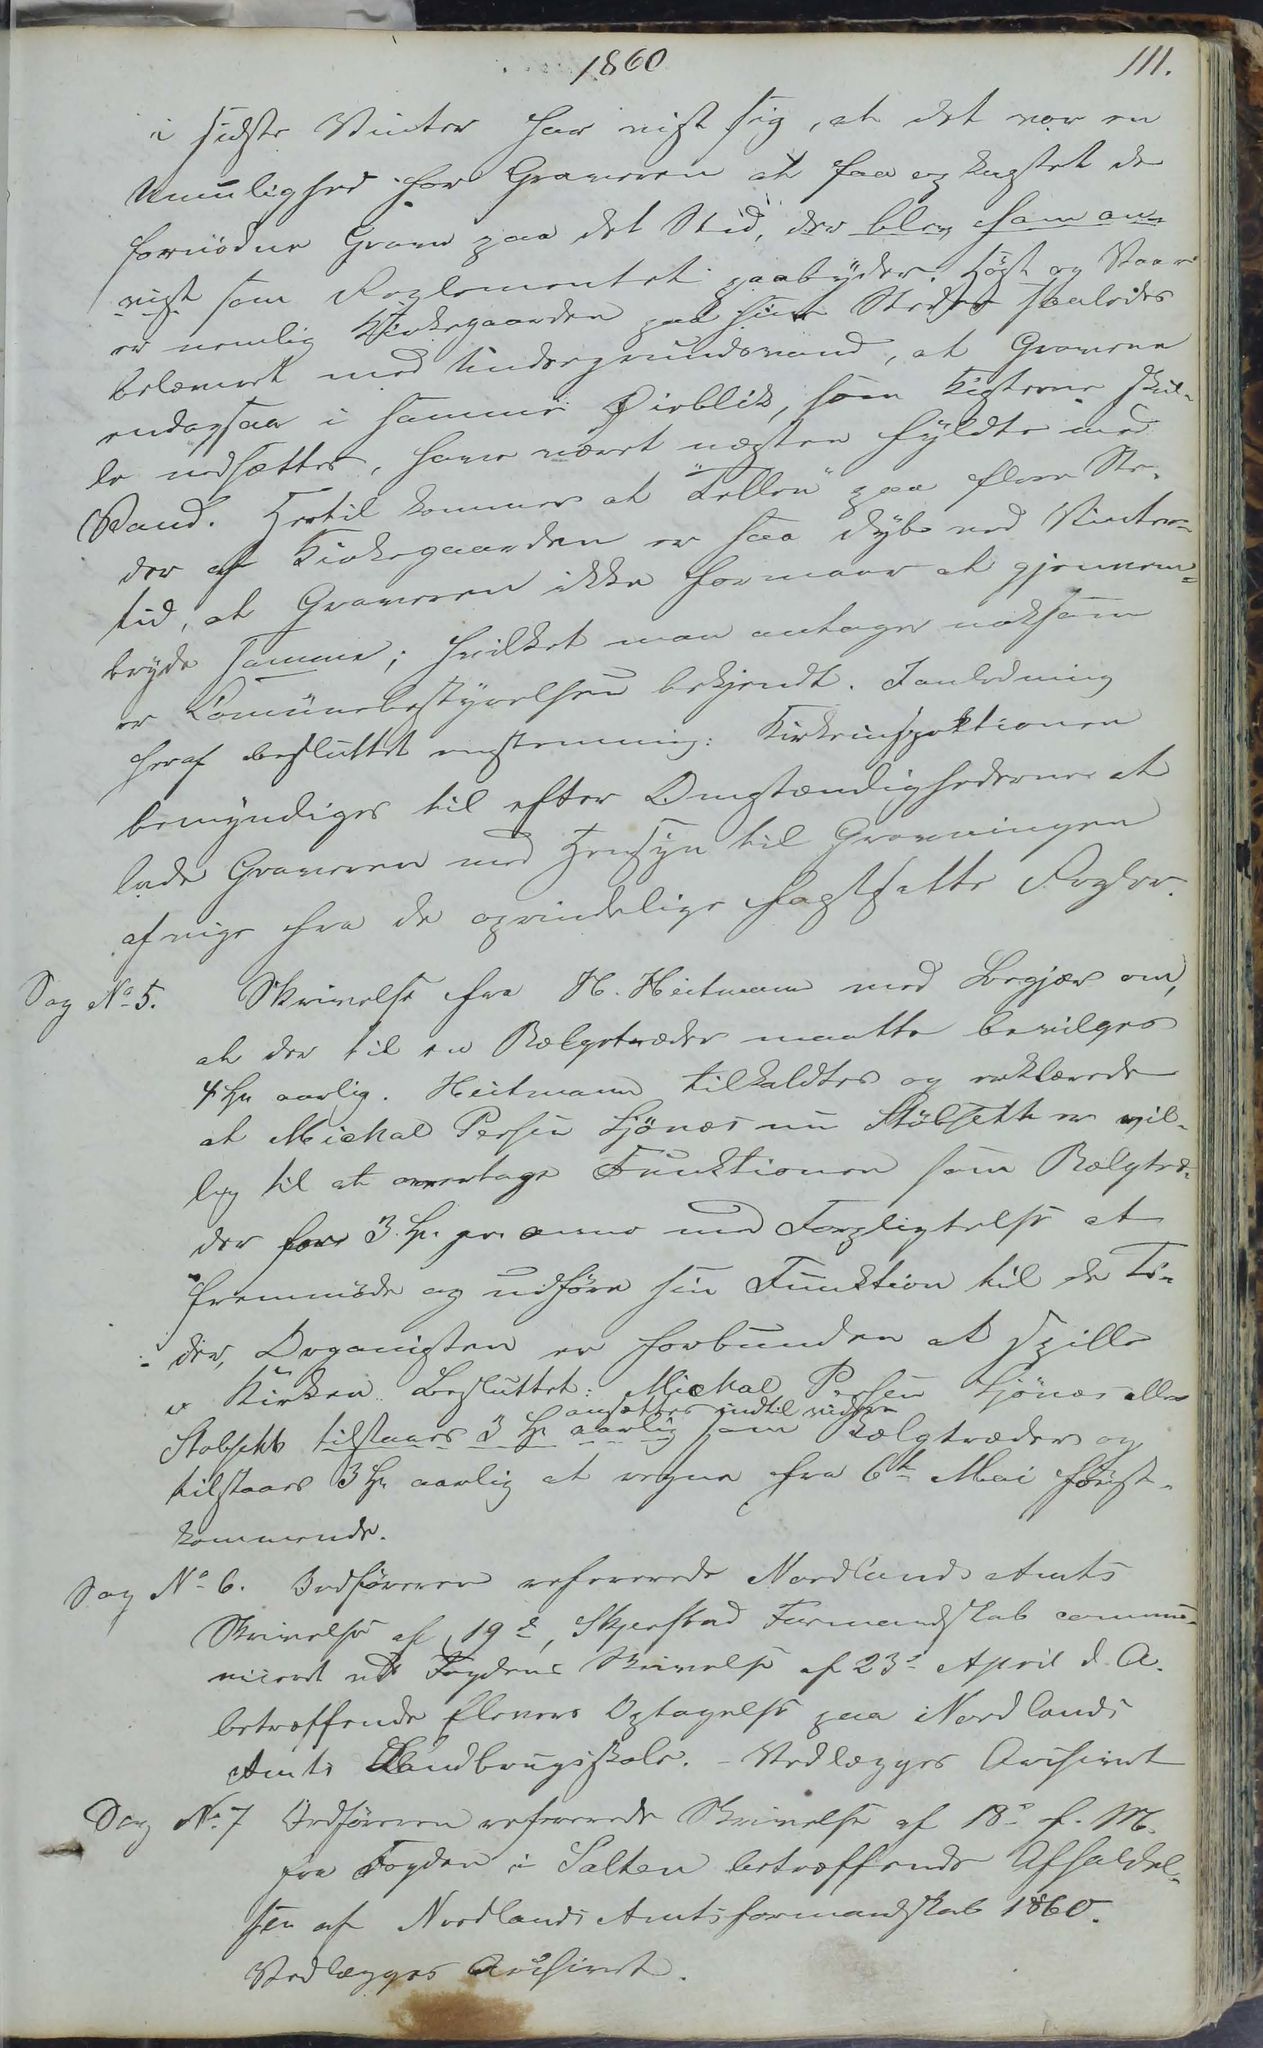 1860
111.
i sidste Vinter har vist sig, at det var en
Umulighed for Graveren at faa opkastet de
fornødne Grave paa det Sted, der blev ham an-
vist som Reglementet paabyder. Høst og Vaar
er nemlig Kirkegaarden paa sine Steder saaledes
belemret med Undergrundsvand, at Gravene
endogsaa i samme Øieblik, som Kisterne skul-
le nedsættes, have været næsten fyldte med
Vand. Hertil kommer at "Tellen" paa flere Ste-
der af Kirkegaarden er saa dyb ved Vinter-
tid, at Graveren ikke formaar at gjennem-
bryde samme; hvilket man antager noksom
er Comünebestyrelsen bekjendt. Ianledning
heraf besluttet enstemmig: Kirkeinspektionen
bemyndiges til efter Omstændighederne at
lade Graveren med Hensyn til Gravningen
afvige fra de oprindelige fastsatte Regler.
Sag No 5. Skrivelse fra H. Heitmann med Begjær om,
at der til en Bælgetræder maatte bevilges
4 Sp aarlig. Heitmann tilkaldtes og erklærede
at Michal Persen Ljönes nu Stübsetk er vil-
lig til at overtage Funktionen som Bælgtræ-
der for 3 Sp. pr. anno med Forpligtelse at
fremmøde og udføre sin Funktion til de Ti-
der, Organisten er forbunden at spille
i Kirken. Besluttet: Michal Persen Ljönes eller
ansættes indtil videre
Stobsetk tilstaaes 3 Sp aarlig som Bælgtræder og
tilstaaes 3 Sp aarlig at regne fra 6te Mai først-
kommende.
Sag No 6. Ordføreren refererede Nordlands Amts
Skrivelse af 19de, Skjerstad Formandskab commu-
niceret ved Fogdens Skrivelse af 23de April d. A.
betræffende Elevers Optagelse paa Nordlands
Amts Landbrugsskole. - Vedlægges Archivet
Sag No 7 Ordføreren refererede Skrivelse af 18de f. M.
fra Fogden i Salten betræffende Afholdel-
sen af Nordlands Amtsformandskab 1860.
Vedlægges Archivet.